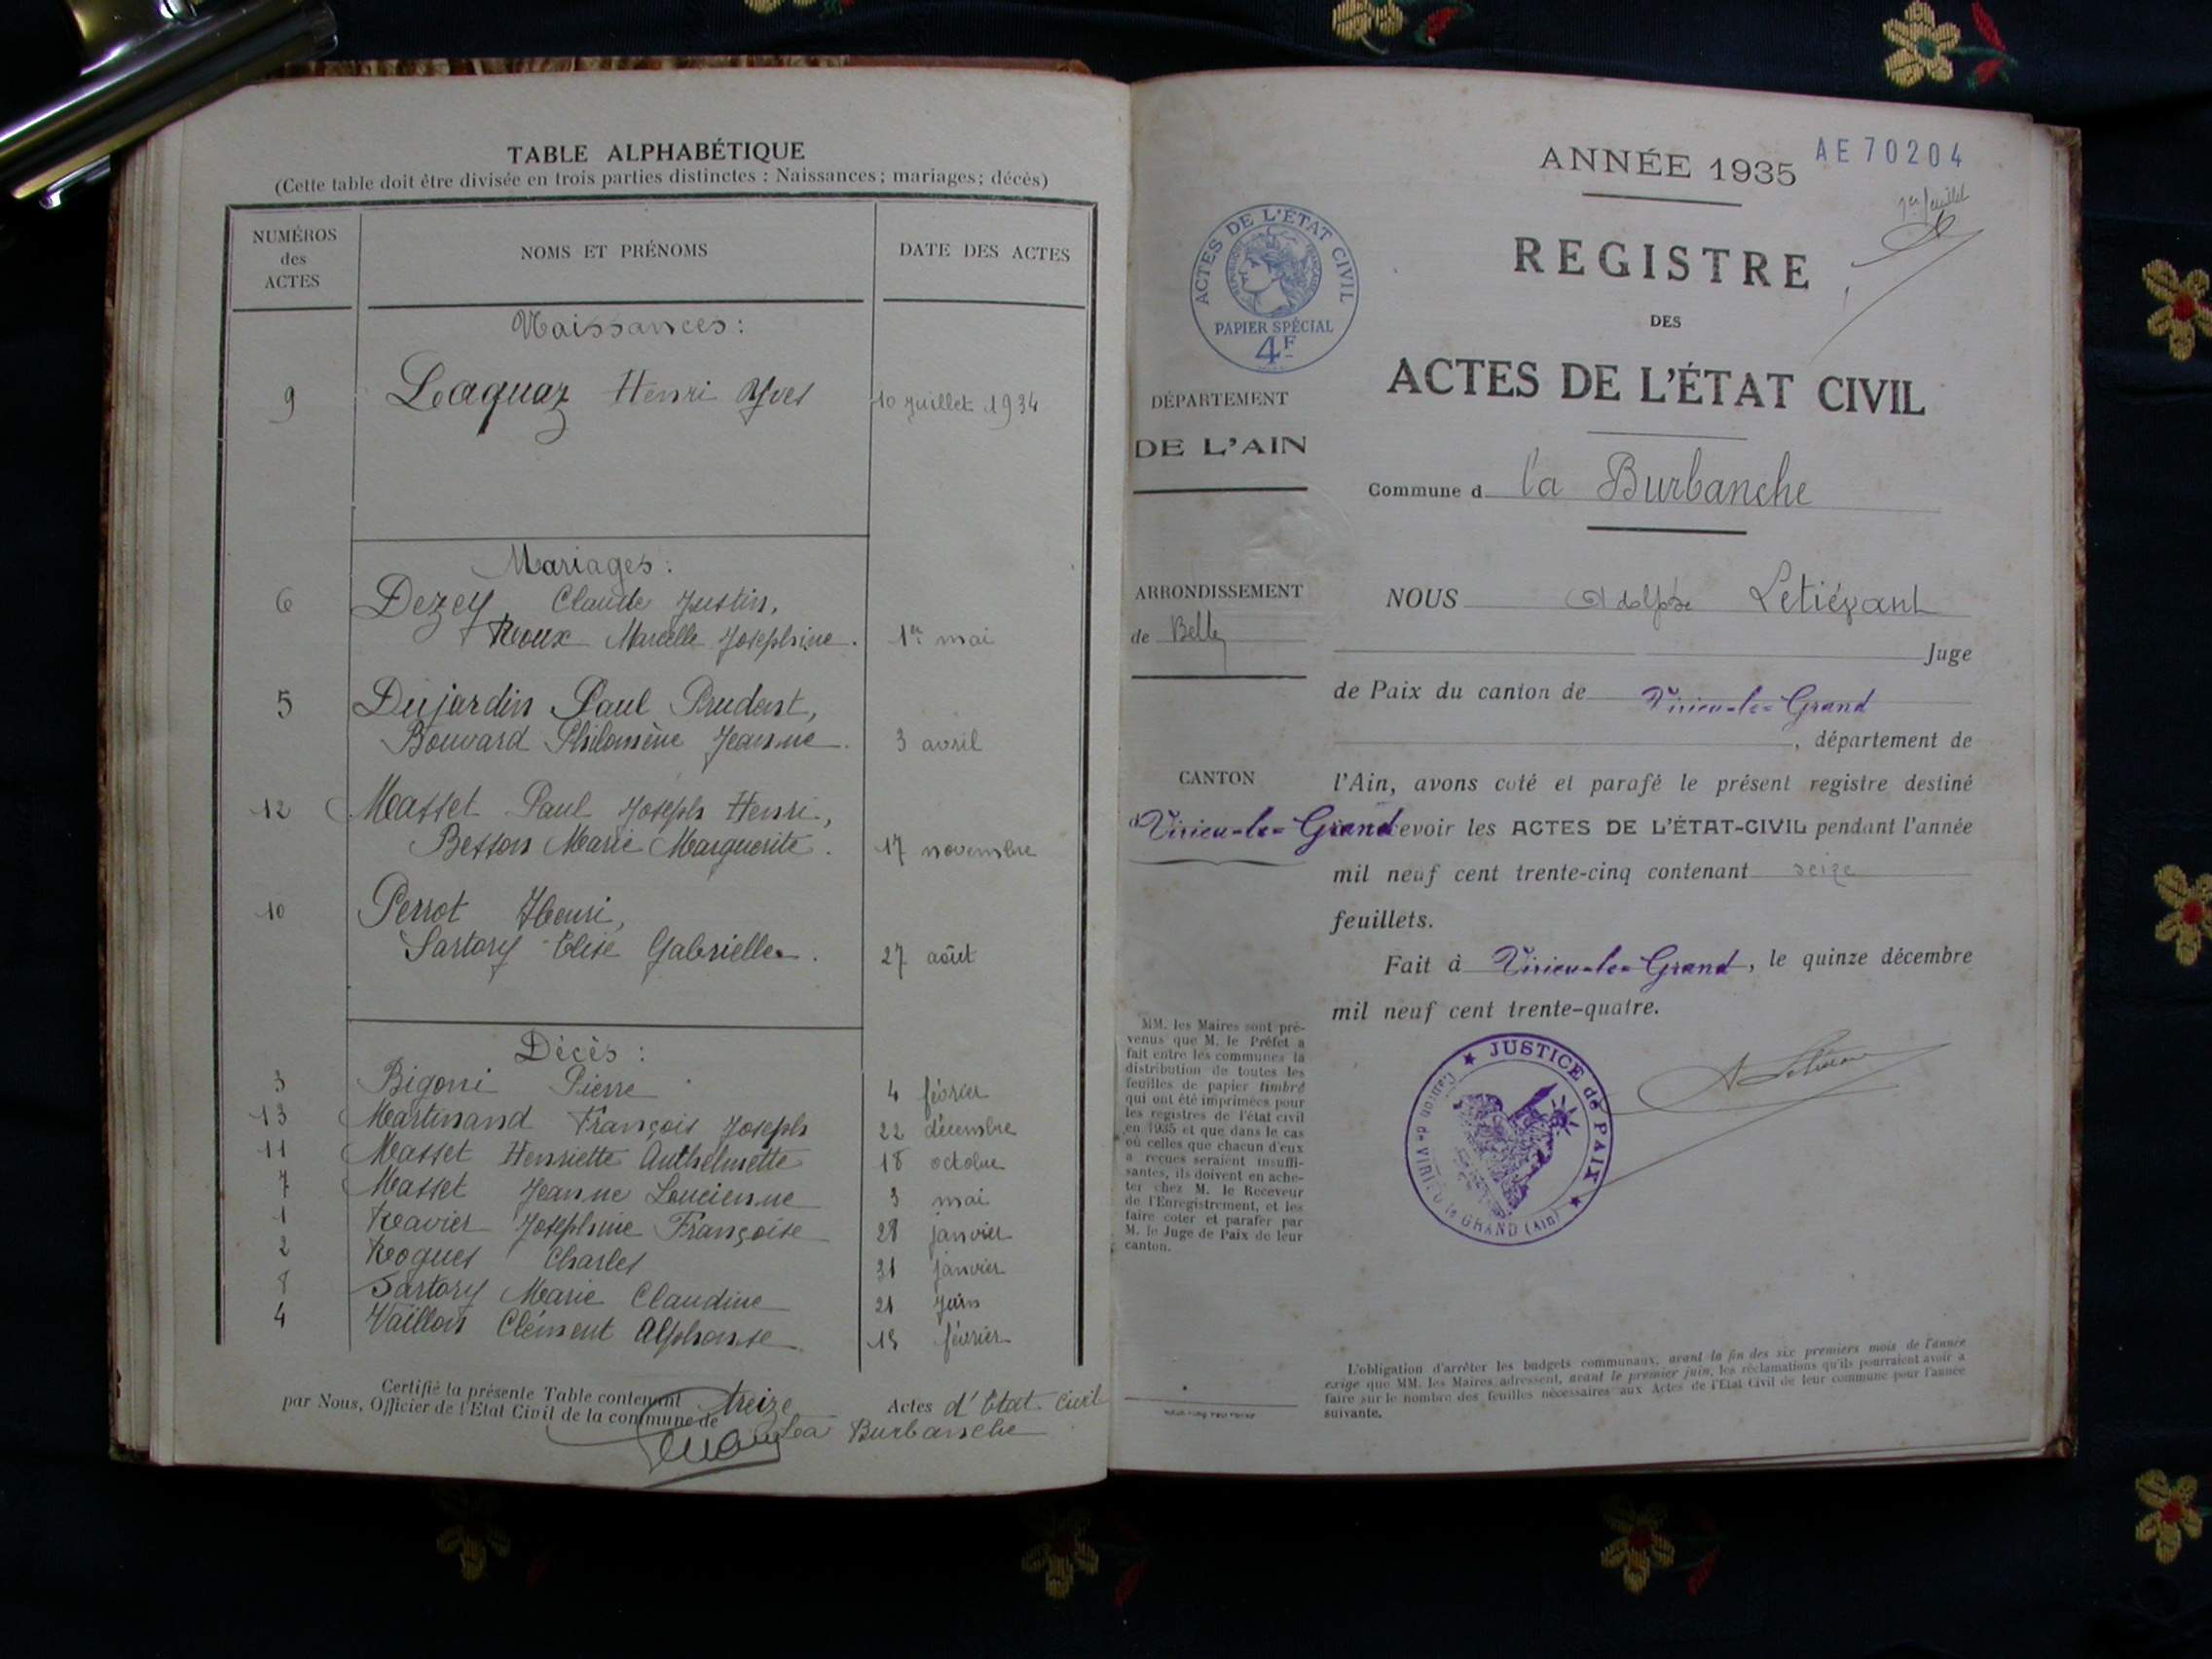 TABLE ALPHABÉTIQUE
(Cette table doit être divisée en trois parties distinctes : Naissances; mariages; décès)
NUMÉROS des ACTES NOMS ET PRÉNOMS DATE DES ACTES
Naissances :
9 Laquaz Henri Yves 10 Juillet 1934
Mariages :
6 Dezey Claude Justin,
Roux Marcelle Josephine. 1er mai
5 Dujardin Paul Prudent,
Bouvard Philomène Jeanne. 3 avril
12 Masset Paul Joseph Henri,
Besson Marie Marguerite. 17 novembre
10 Perrot Henri,
Sartory Elise Gabrielle. 27 août
Décès :
3 Bigoni Pierre 4 février
13 Martinand François Joseph 22 décembre
11 Masset Henriette Anthelmette 18 octobre
7 Masset Jeanne Lucienne 3 mai
1 Ravier Josephine Françoise 28 janvier
2 Roques Charles 31 janvier
8 Sartory Marie Claudine 21 Juin
4 Vaillon Clément Alphonse 15 février
Certifié la présente Table contenant treize Actes d'Etat Civil
par Nous, Officier de l'Etat Civil de la commune de La Burbanche
ANNÉE 1935 AE 70204
1er feuillet
REGISTRE
DES
ACTES DE L'ÉTAT CIVIL
ACTES DE L'ÉTAT CIVIL
RÉPUBLIQUE FRANÇAISE
PAPIER SPÉCIAL
4F
DÉPARTEMENT
DE L'AIN
Commune d la Burbanche
ARRONDISSEMENT
de Belley
CANTON
d Virieu-le-Grand
NOUS Adolphe Letiévant
Juge
de Paix du canton de Virieu-le-Grand
, département de
l'Ain, avons coté et parafé le présent registre destiné
recevoir les ACTES DE L'ÉTAT-CIVIL pendant l'année
mil neuf cent trente-cinq contenant seize
feuillets.
Fait à Virieu-le-Grand, le quinze décembre
mil neuf cent trente-quatre.
JUSTICE de PAIX
Canton de VIRIEU le GRAND (Ain)
MM. les Maires sont pré-
venus que M. le Préfet a
fait entre les communes la
distribution de toutes les
feuilles de papier timbré
qui ont été imprimées pour
les registres de l'état civil
en 1935 et que dans le cas
où celles que chacun d'eux
a reçues seraient insuffi-
santes, ils doivent en ache-
ter chez M. le Receveur
de l'Enregistrement, et les
faire coter et parafer par
M. le Juge de Paix de leur
canton.
L'obligation d'arrêter les budgets communaux, avant la fin des six premiers mois de l'année
exige que MM. les Maires adressent, avant le premier juin, les réclamations qu'ils pourraient avoir à
faire sur le nombre des feuilles nécessaires aux Actes de l'Etat Civil de leur commune pour l'année
suivante.